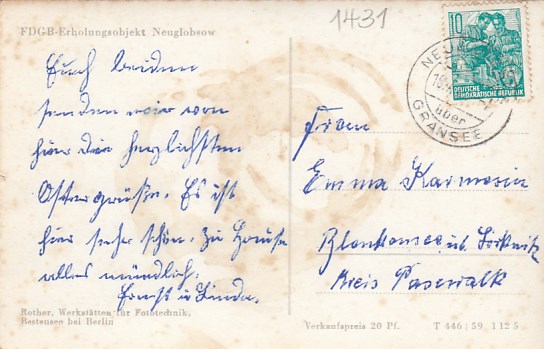 1431
FDGB-Erholungsobjekt Neuglobsow
10
DEUTSCHE
DEMOKRATISCHE REPUBLIK
über
GRANSEE
Euch beiden
senden wir von
hier die herzlichsten
Ostergrüße. Es ist
hier sehr schön. Zu Hause
alles mündlich.
Frau
Emma
Blankensee üb. Löcknitz
Kreis Pasewalk
Rother, Werkstätten für Fototechnik,
Bestensee bei Berlin
Verkaufspreis 20 Pf. T 446 | 59 1 12 5